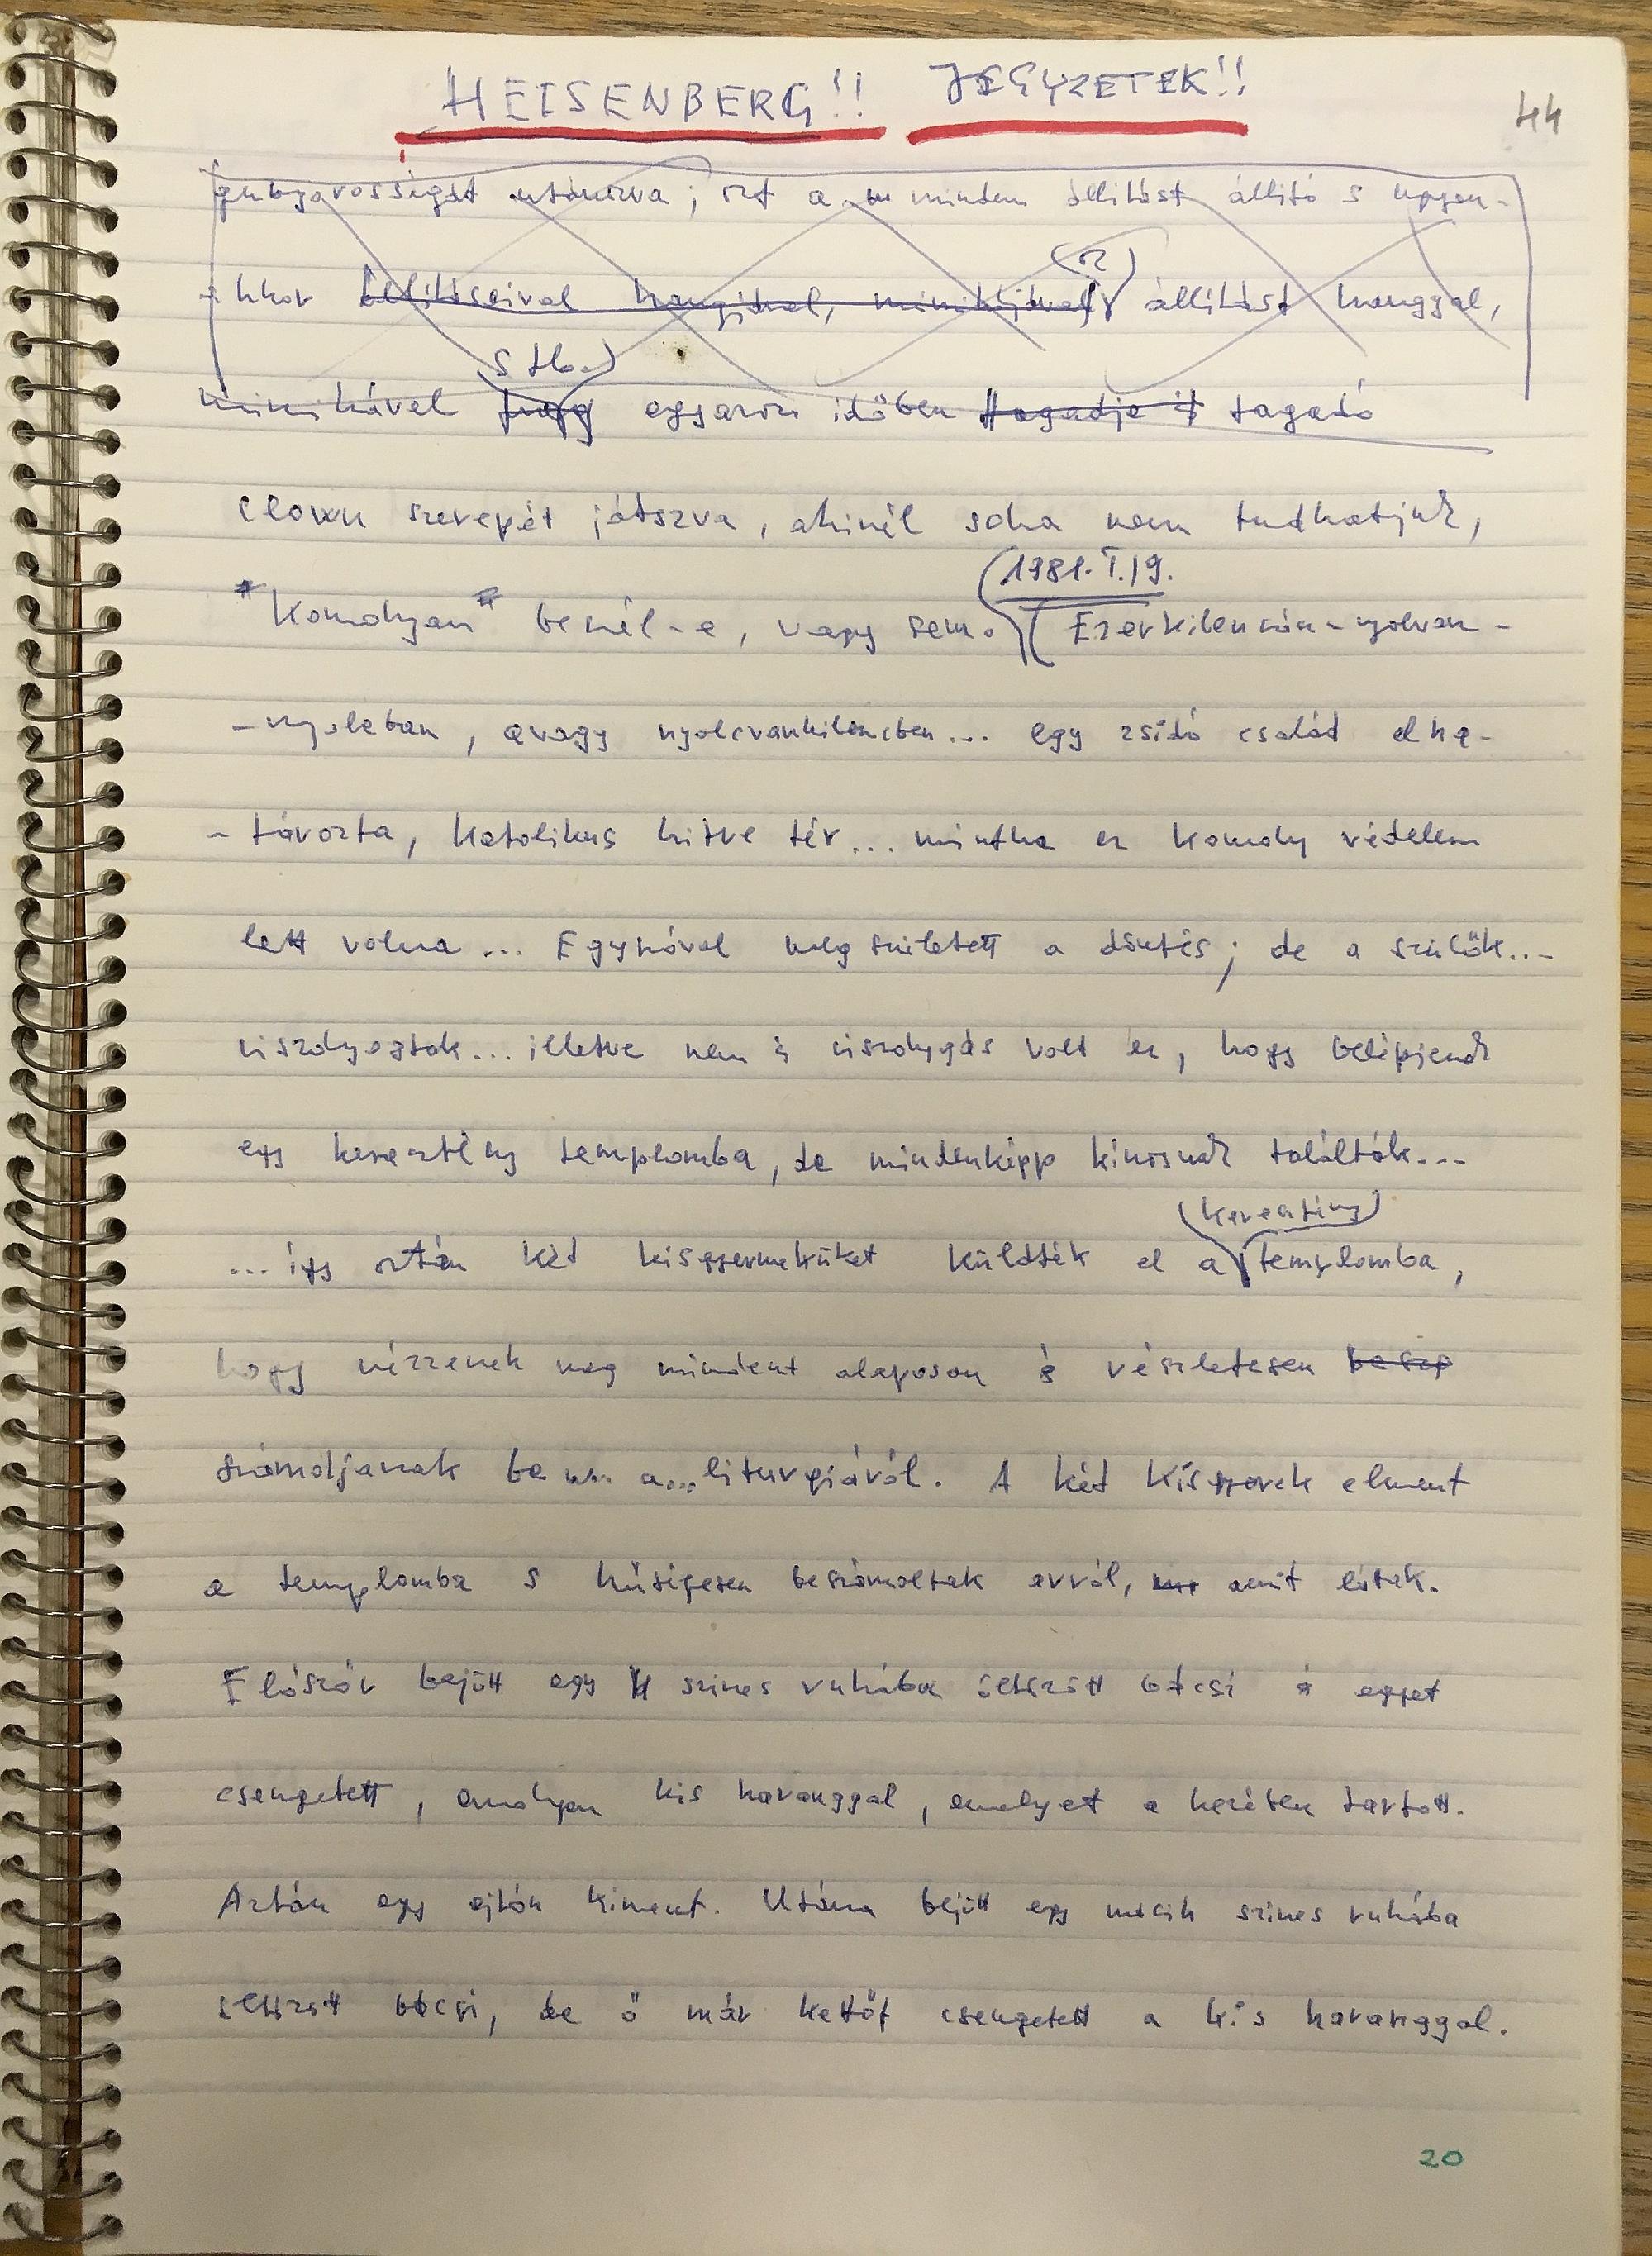 HEISENBERG!! JEGYZETEK!!
44
gubgavosságát utánozva; ezt a minden állítást állító s ugyan-
-akkor állításaival hangjával, mimikájával (az) állítást hanggal,
mimikával (stb.) egyazon időben tagadja is tagadó
clown szerepét játszva, akinél soha nem tudhatjuk,
"Komolyan" beszél-e, vagy sem. (1981. I. 19.) Ezerkilencszáz-nyolvan-
-nyolcban, avagy nyolcvankilencben... egy zsidó család elha-
-tározta, katolikus hitre tér... mintha ez komoly védelem
lett volna... Egyszóval megszületett a döntés; de a szülők...
viszolyogtak... illetve nem is viszolygás volt ez, hogy belépjenek
egy keresztény templomba, de mindenképp kínosnak találták...
(keresztény)
... így aztán két kisgyermeküket küldték el a templomba,
hogy nézzenek meg mindent alaposan és részletesen
számoljanak be ... a... liturgiáról. A két kisgyerek elment
a templomba s hűségesen beszámoltak arról, amit láttak.
Először bejött egy színes ruhába öltözött bácsi s egyet
csengetett, amolyan kis haranggal, amelyet a kezében tartott.
Aztán egy ajtón kiment. Utána bejött egy másik színes ruhába
öltözött bácsi, de ő már kettőt csengetett a kis haranggal.
20